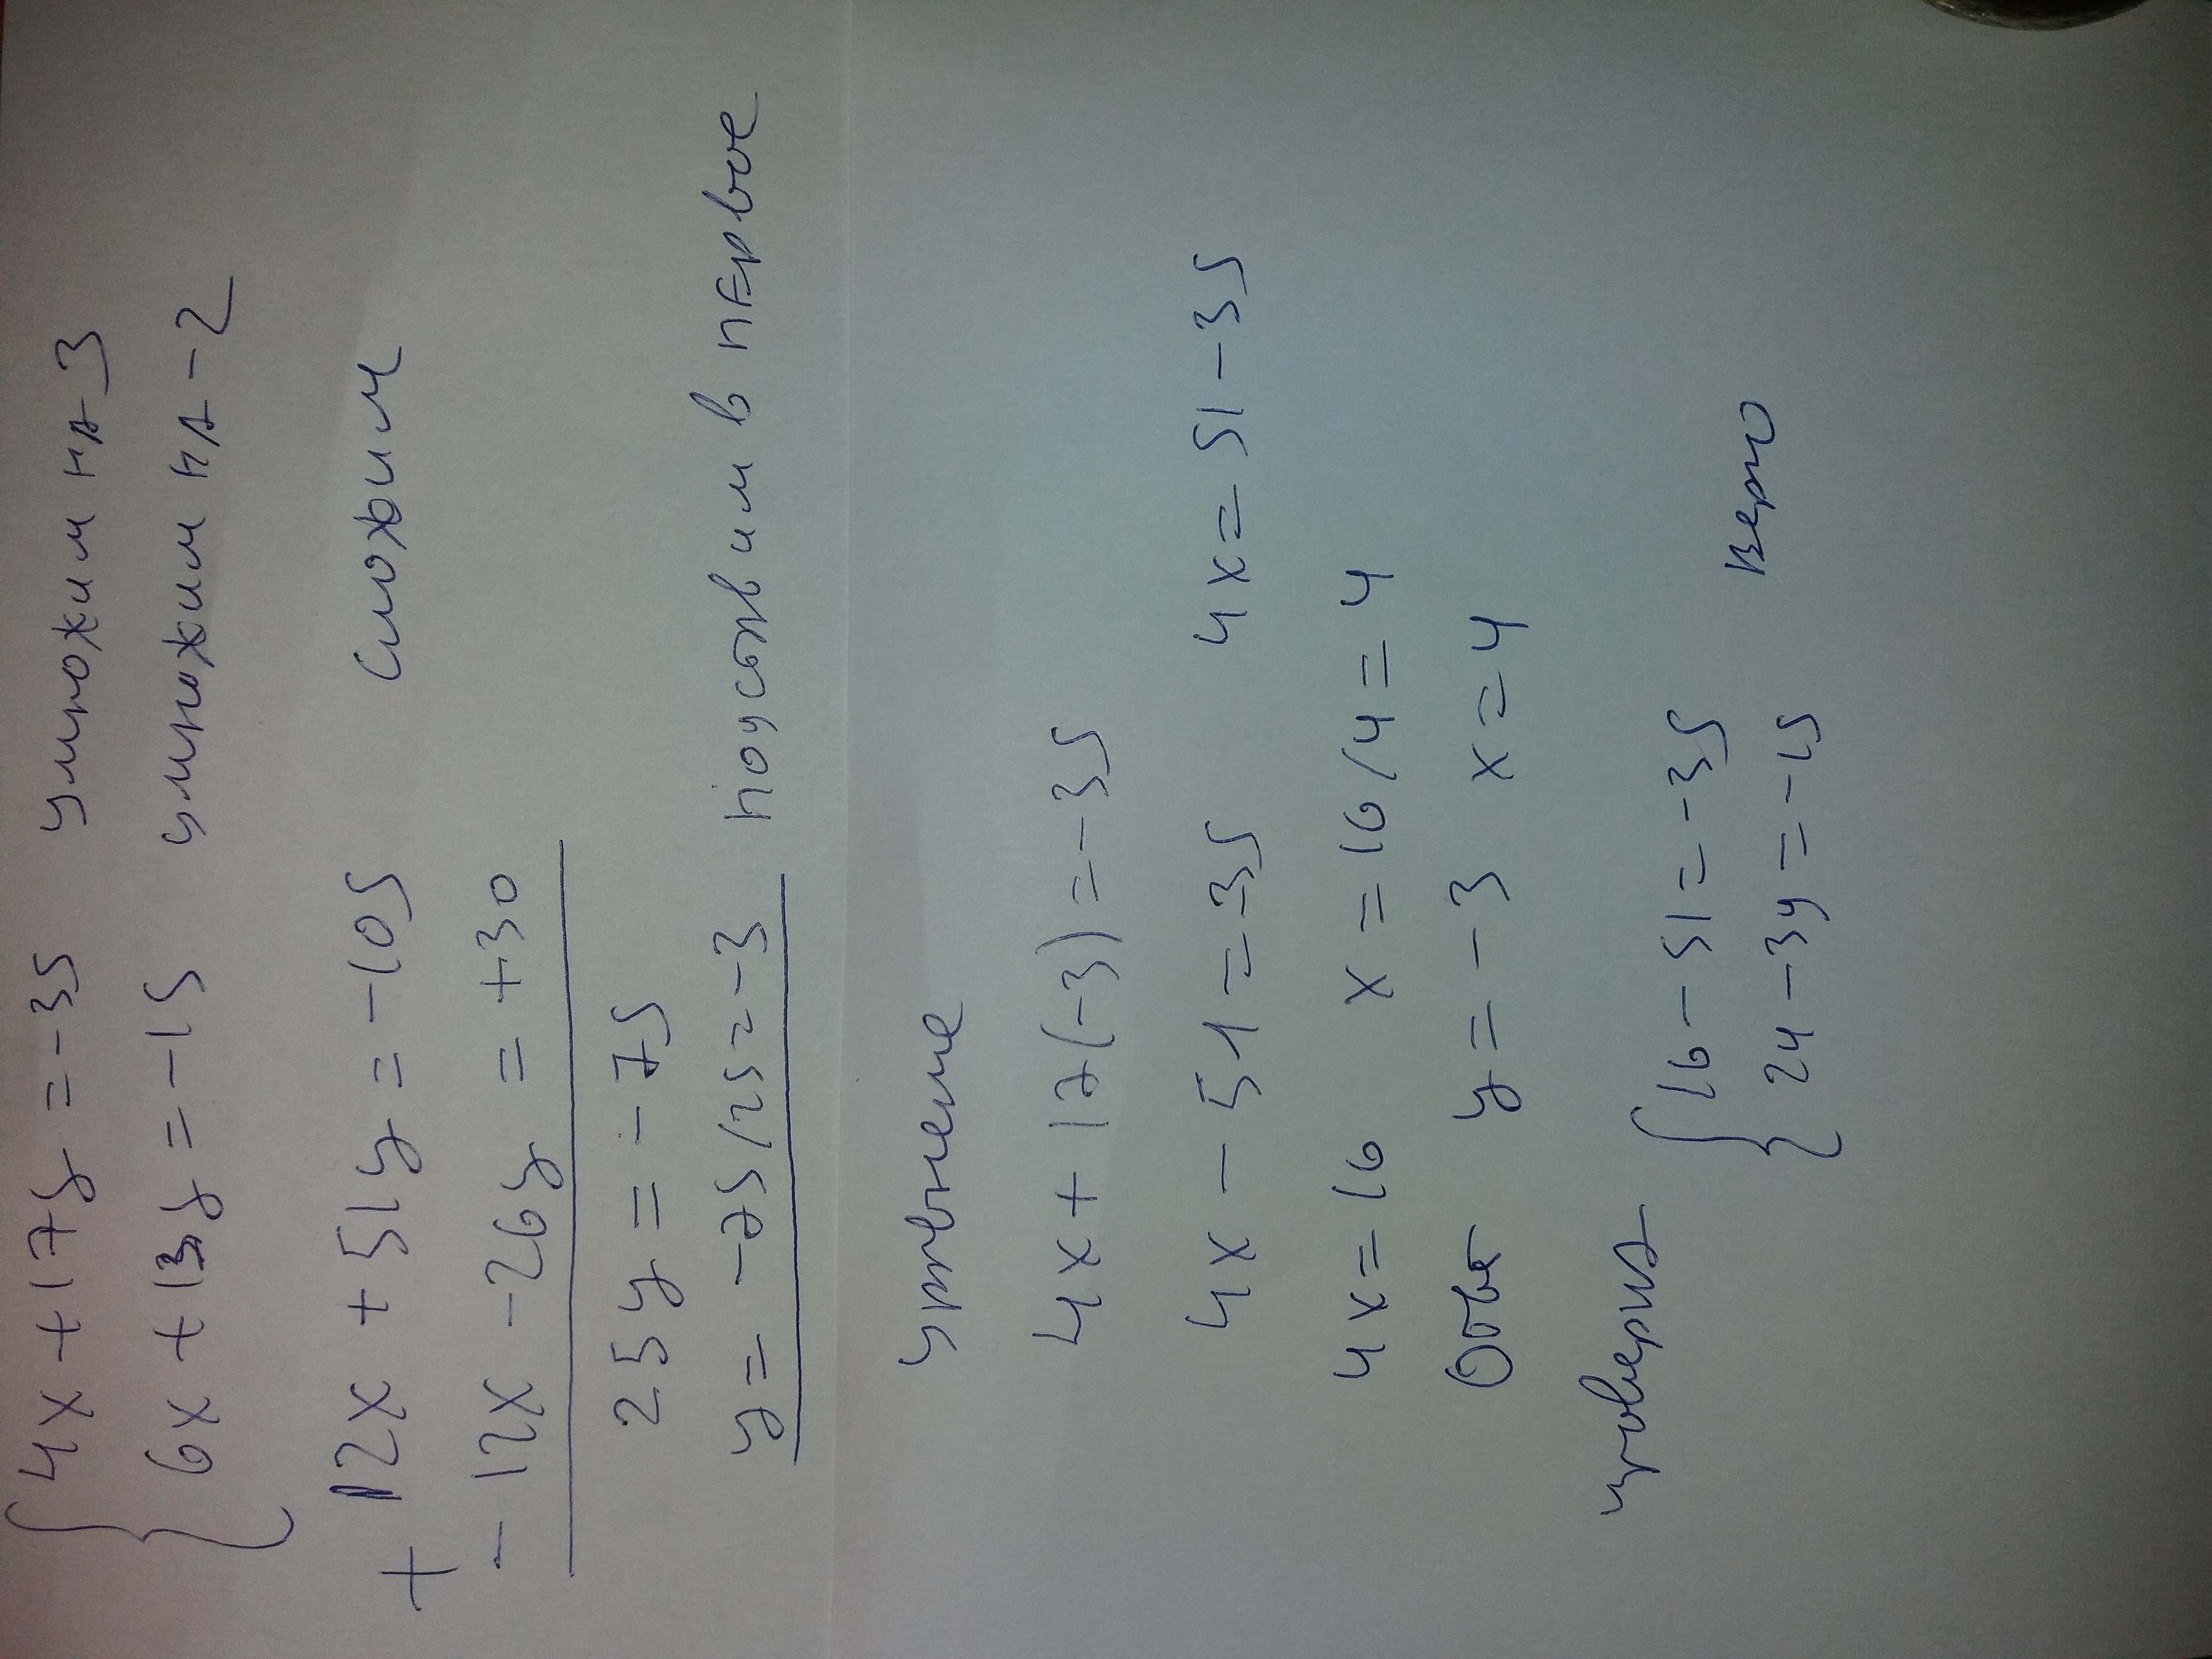 4x + 17y = -35 умножим на 3
6x + 13y = -15 умножим на -2
+ 12x + 51y = -105 сложим
- 12x - 26y = +30
25y = -75
y = -75/25 = -3 подставим в первое
уравнение
4x + 17(-3) = -35
4x - 51 = -35 4x = 51 - 35
4x = 16 x = 16/4 = 4
Ответ y = -3 x = 4
проверка { 16 - 51 = -35
24 - 39 = -15 верно